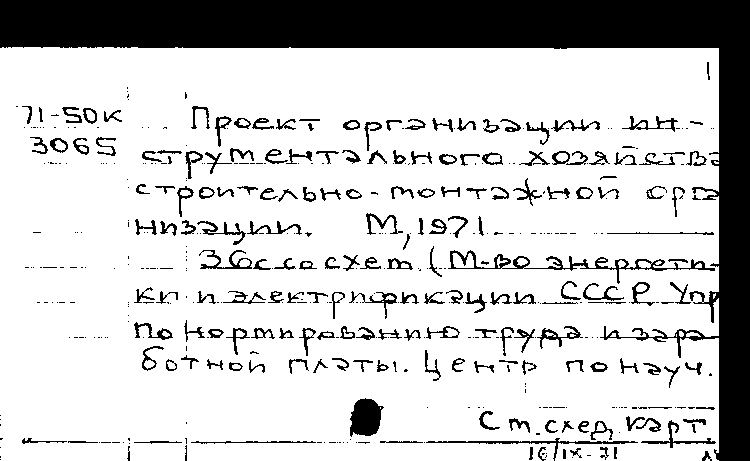 1
71-50к Проект организации ин-
3065 струментального хозяйства
строительно-монтажной орга
низации. М, 1971.
36с со схет (М-во энергети-
ки и электрификации СССР. Упр
по нормированию труда и зара
ботной платы. Центр по науч.
Ст. след. карт.
16/IX-71